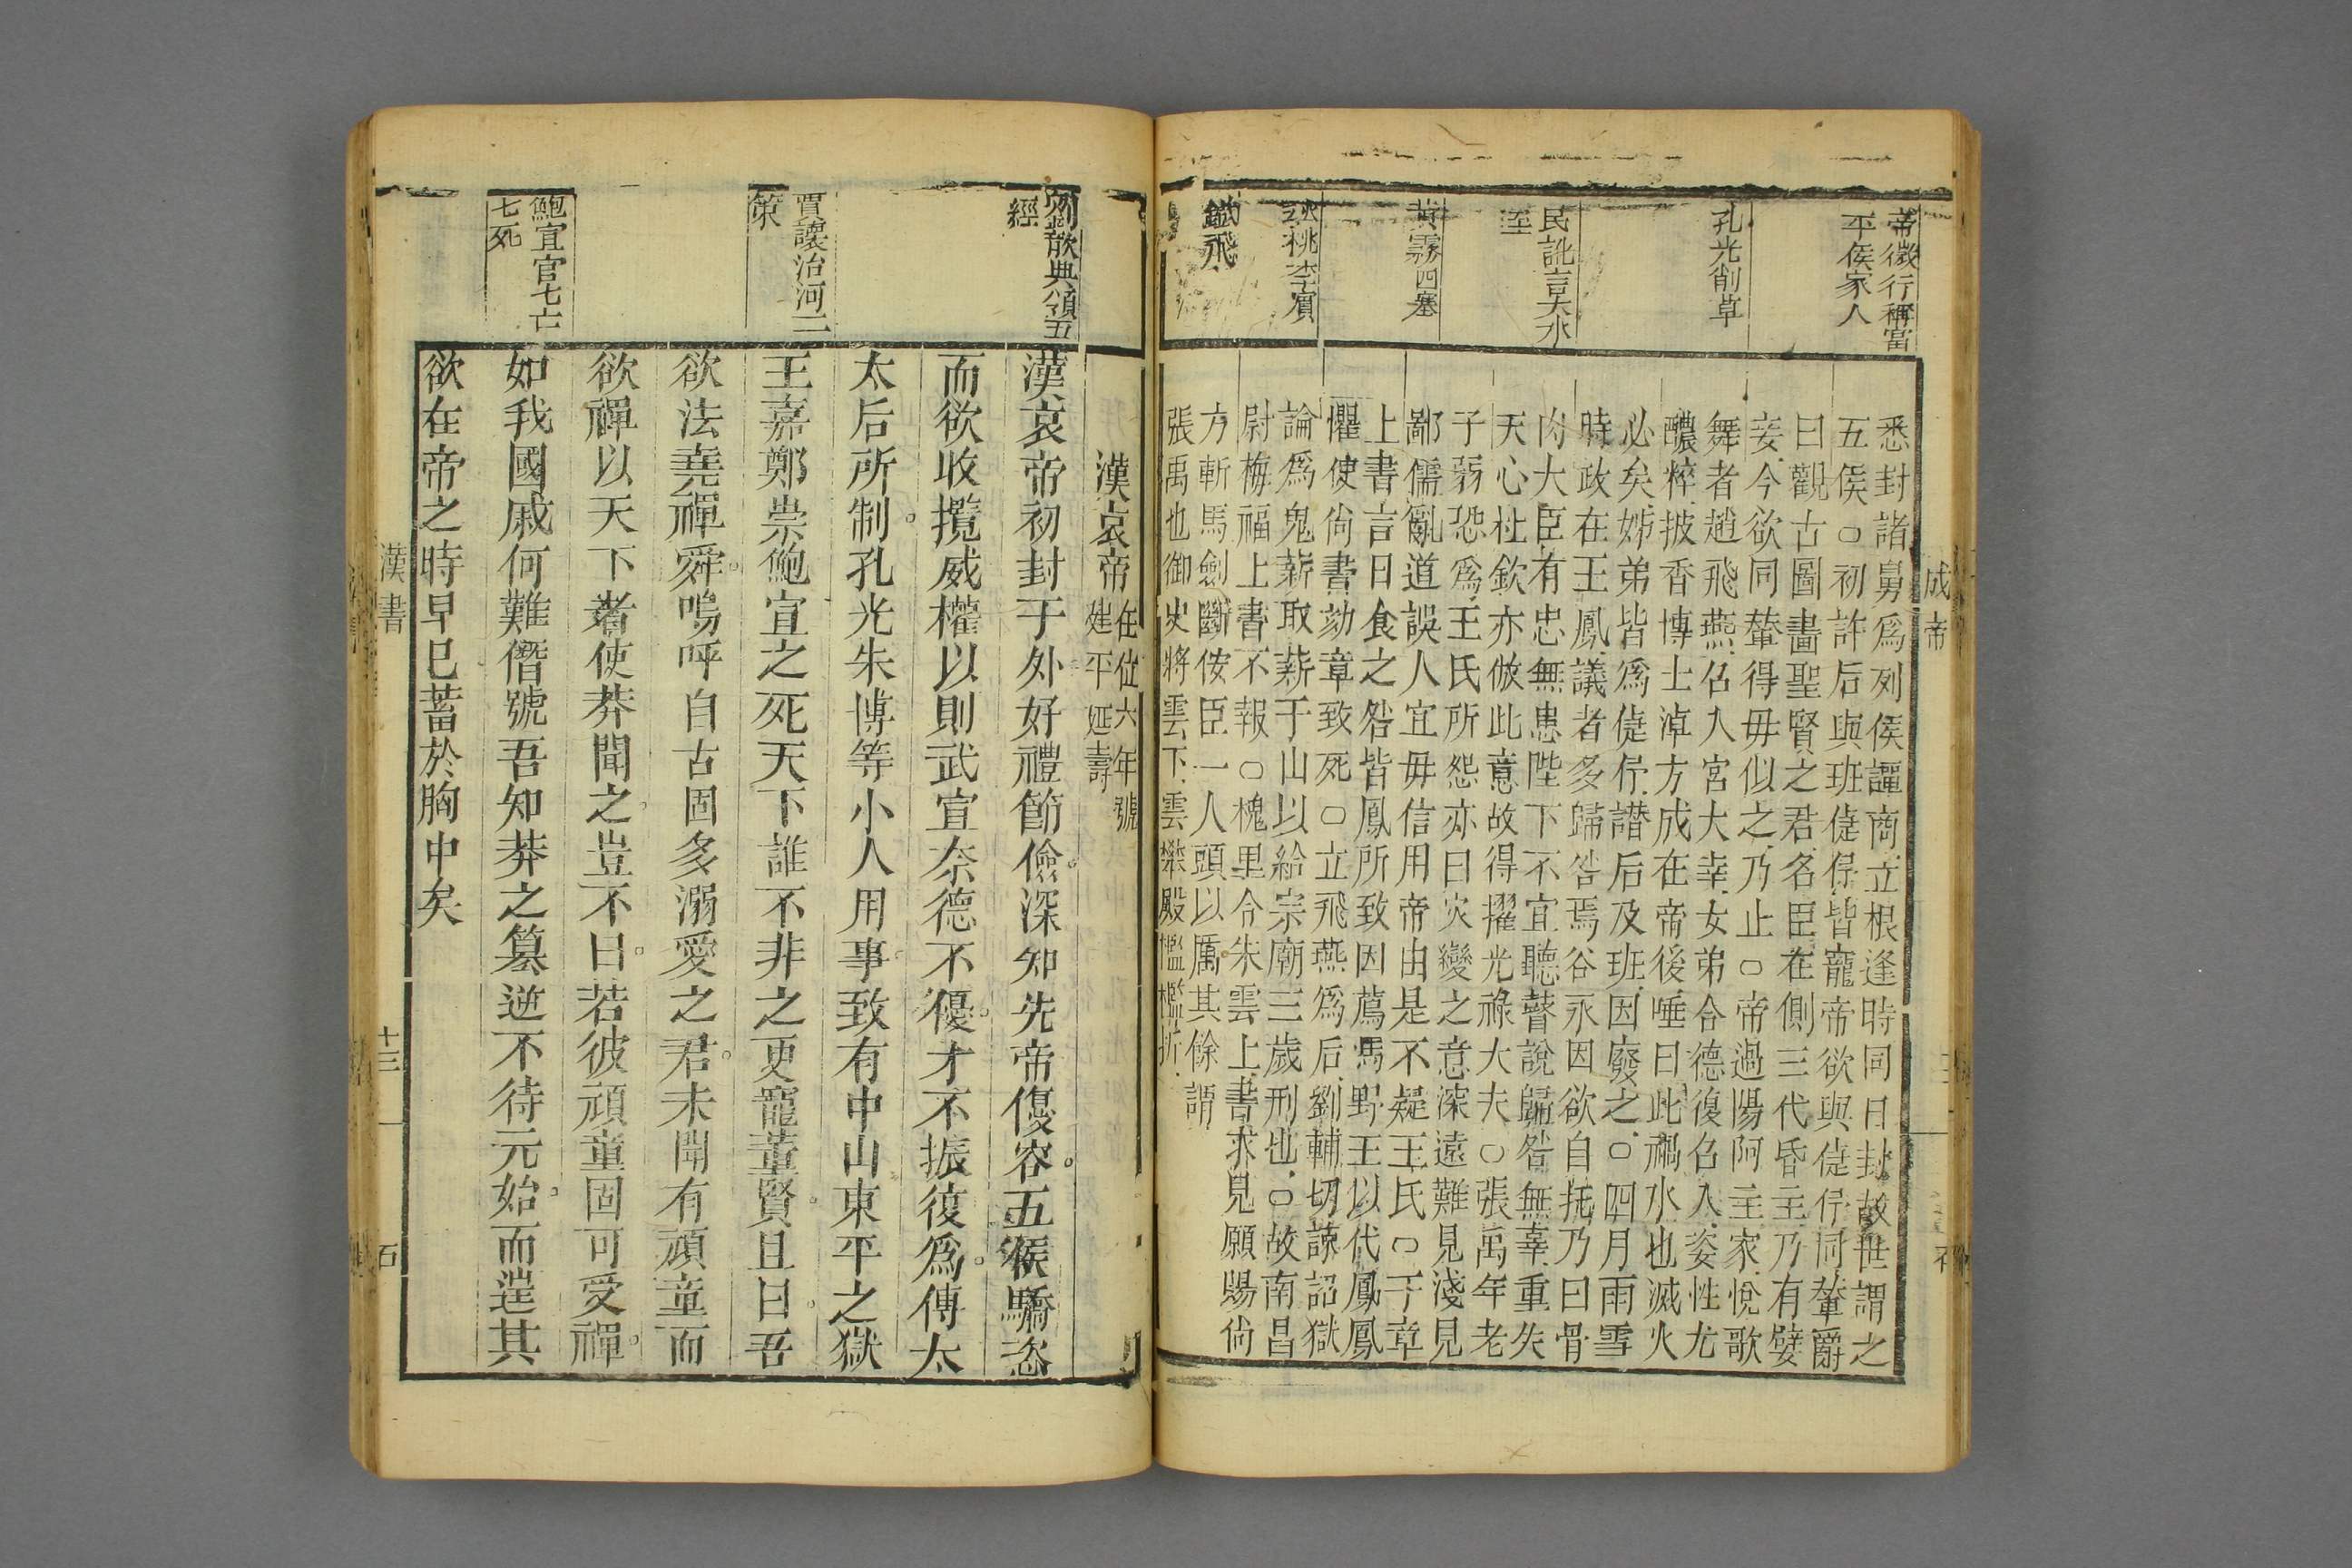 成帝
帝微行稱富
平侯家人
孔光削草
民訛言大水
至
黃霧四塞
桃李實
鐵飛
悉封諸舅爲列侯譚商立根逢時同日封故世謂之
五侯○初許后與班倢伃皆寵帝欲與倢伃同輦爵
曰觀古圖畵聖賢之君名臣在側三代昏主乃有嬖
妾今欲同輦得毋似之乃止○帝過陽阿主家悅歌
舞者趙飛燕召入宮大幸女弟合德復召入姿性尤
醲粹披香博士淖方成在帝後唾曰此禍水也滅火
必矣姊弟皆爲倢伃譖后及班因廢之○四月雨雪
時政在王鳳議者多歸咎焉谷永因欲自托乃曰骨
肉大臣有忠無患陛下不宜聽瞽說歸咎無辜重失
天心杜欽亦倣此意故得擢光祿大夫○張萬年老
子弱恐爲王氏所怨亦曰災變之意深遠難見淺見
鄙儒亂道誤人宜毋信用帝由是不疑王氏○王章
上書言日食之咎皆鳳所致因薦馮野王以代鳳鳳
懼使尙書劾章致死○立飛燕爲后劉輔切諫詔獄
論爲鬼薪取薪于山以給宗廟三歲刑也○故南昌
尉梅福上書不報○槐里令朱雲上書求見願賜尙
方斬馬劍斷佞臣一人頭以厲其餘謂
張禹也御史將雲下雲攀殿檻檻折
劉歆典領五
經
賈讓治河三
策
鮑宣官七亡
七死
漢哀帝在位六年號
建平延壽
漢哀帝初封于外好禮節儉深知先帝優容五侯驕恣
而欲收攬威權以則武宣奈德不優才不振復爲傳太
太后所制孔光朱博等小人用事致有中山東平之獄
王嘉鄭崇鮑宣之死天下誰不非之更寵董賢且曰吾
欲法堯禪舜嗚呼自古固多溺愛之君未聞有頑童而
欲禪以天下者使莽聞之豈不曰若彼頑童固可受禪
如我國戚何難僭號吾知莽之篡逆不待元始而逞其
欲在帝之時早已蓄於胸中矣
漢書
十三